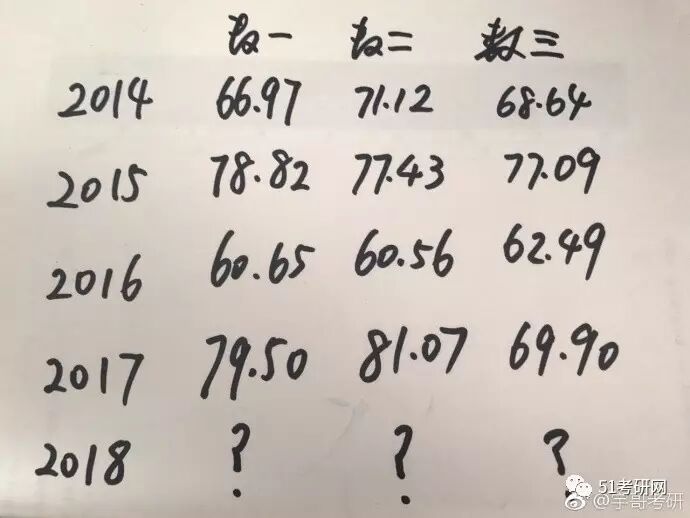 数一 数二 数三
2014 66.97 71.12 68.64
2015 78.82 77.43 77.09
2016 60.65 60.56 62.49
2017 79.50 81.07 69.90
2018 ? ? ?
51考研网
@宇哥考研